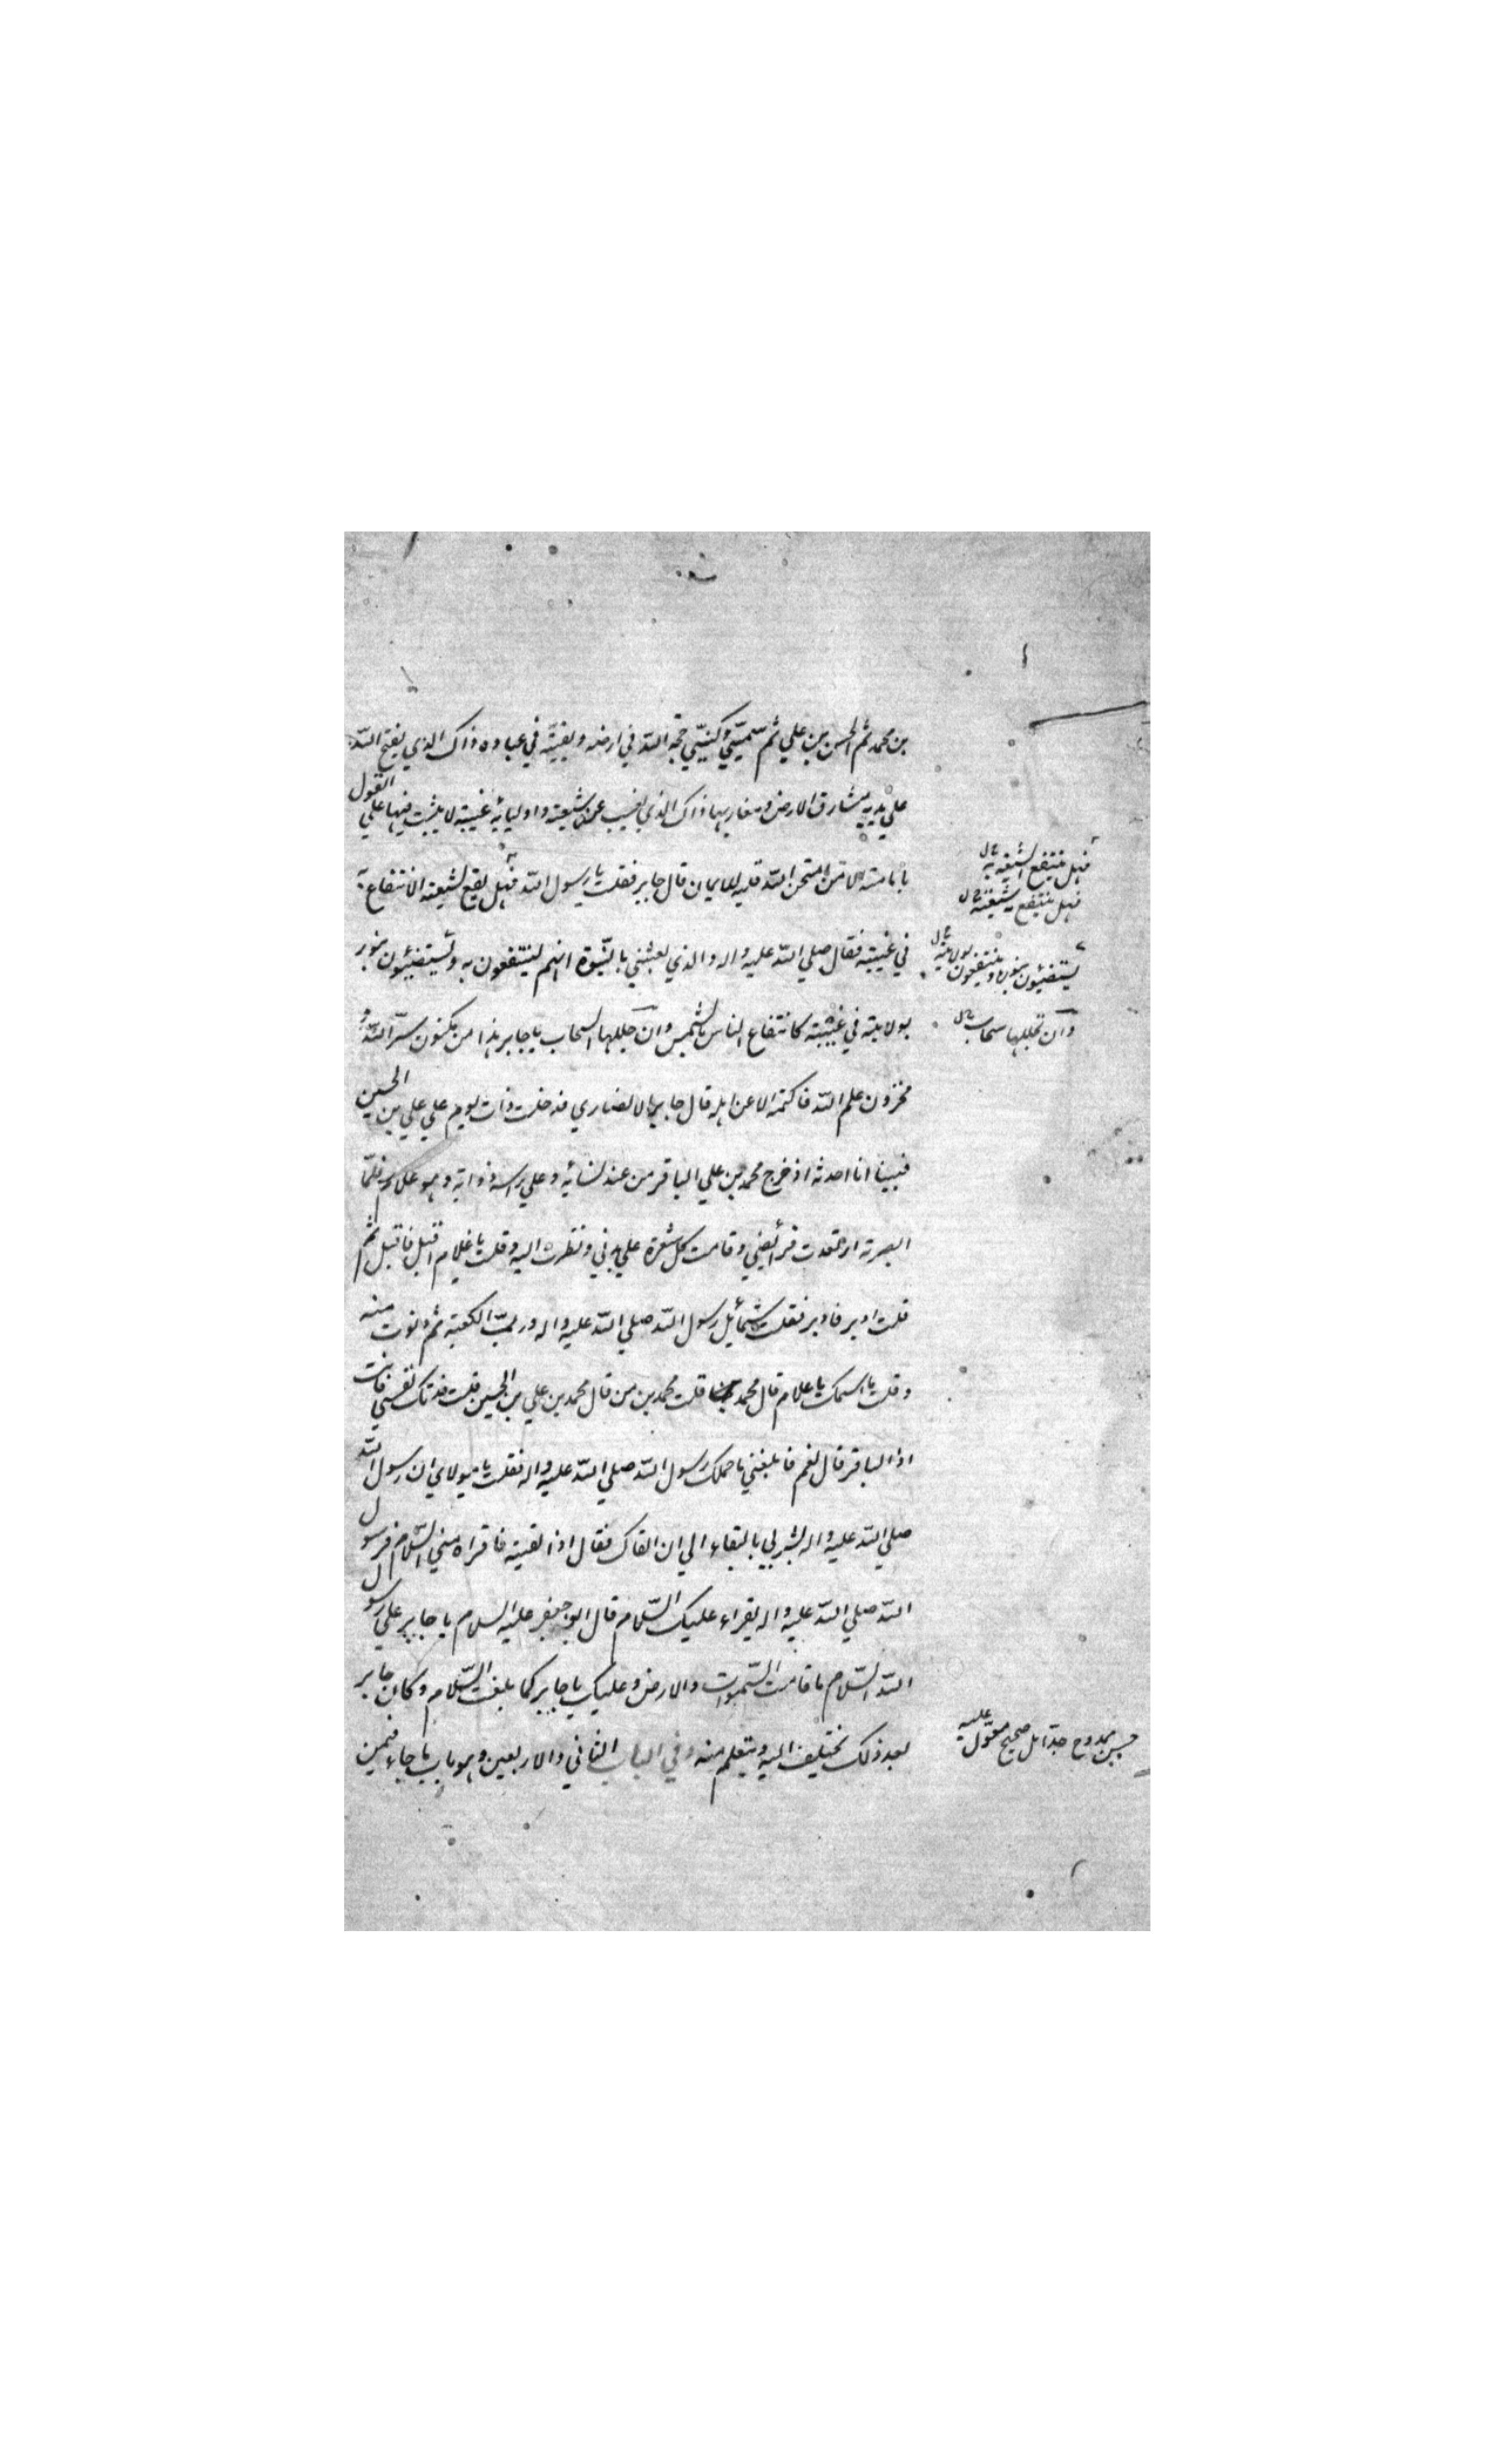 بن محمد ثم الحسن بن علي ثم سميّي وكنيّي حجة الله في ارضه وبقيته في عباده ذاك الذي يفتح الله
علي يديه مشارق الارض ومغاربها ذاك الذي يغيب عن شيعته واوليائه غيبته لا يثبت فيها علي القول
بامامته الا من امتحن الله قلبه للايمان قال جابر فقلت يا رسول الله فهل يقع لشيعته الانتفاع به
في غيبته فقال صلي الله عليه واله والذي بعثني بالنبوة انهم لينتفعون به ويستضيئون بنور
بولايته في غيبته كانتفاع الناس بالشمس وان جللها السحاب يا جابر هذا من مكنون سرّ الله و
مخزون علم الله فاكتمه الا عن اهله قال جابر الانصاري فدخلت ذات يوم علي علي بن الحسين
فبينا انا احدثه اذ خرج محمد بن علي الباقر من عند نسائه وعلي راسه ذوابة وهو غلام فلمّا
ابصرته ارتعدت فرائصي وقامت كل شعرة علي بدني ونظرت اليه وقلت يا غلام اقبل فاقبل ثم
قلت ادبر فادبر فقلت شمائل رسول الله صلي الله عليه واله وربّ الكعبة ثم دنوت منه
وقلت ما اسمك يا غلام قال محمد قلت محمد بن من قال محمد بن علي بن الحسين قلت فدتك نفسي فانت
اذا الباقر قال نعم فابلغني ما حملك رسول الله صلي الله عليه واله فقلت يا مولاي ان رسول الله
صلي الله عليه واله بشرني بالبقاء الي ان القاك فقال اذا لقيته فاقراه مني السّلام فرسول
الله صلي الله عليه واله يقراء عليك السّلام قال ابو جعفر عليه السلام يا جابر علي رسول
الله السّلام ما قامت السّموات والارض وعليك يا جابر كما بلغت السّلام وكان جابر
بعد ذلك يختلف اليه ويتعلم منه وفي الباب الثاني والاربعين وهو باب ما جاء فيمن
فهل ينتفع الشيعة به
فهل ينتفع شيعته
يستضيئون بنوره وينتفعون بولايته
وان تجللها سحاب
حسن ممدوح صحيح عليه